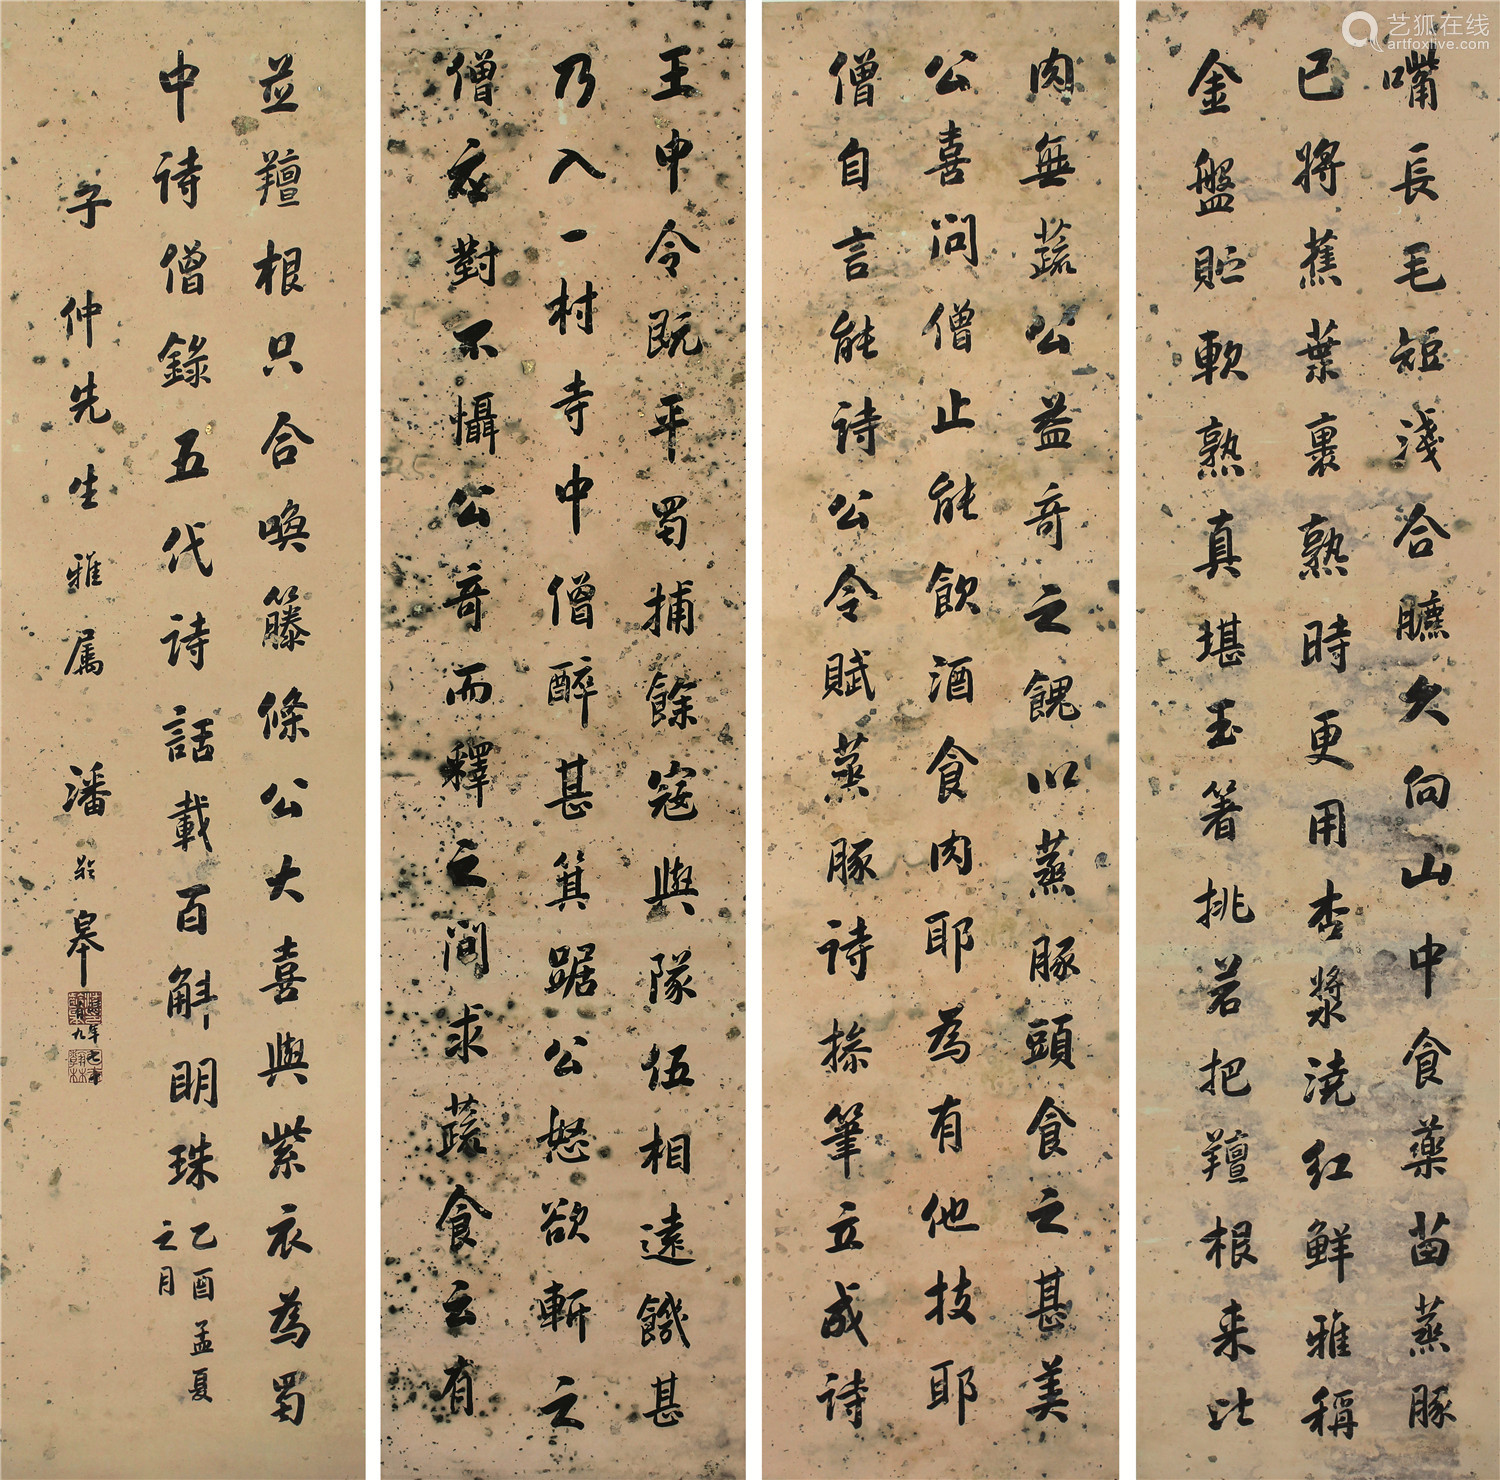 王中令既平蜀捕餘寇與隊伍相遠饑甚
乃入一村寺中僧醉甚箕踞公怒欲斬之
僧应對不懾公奇而釋之問求蔬食云有
肉無蔬公益奇之餽以蒸豚頭食之甚美
公喜問僧止能飲酒食肉耶為有他技耶
僧自言能詩公令賦蒸豚詩操筆立成詩
嘴長毛短淺合臕久向山中食藥苗蒸豚
已將蕉葉裹熟時更用杏漿澆红鮮雅稱
金盤貯軟熟真堪玉箸挑若把羶根来比
並羶根只合喚籐條公大喜與紫衣為蜀
中詩僧錄五代詩話載百斛明珠
乙酉孟夏
之月
子仲先生雅属 潘齡皋
艺狐在线
artfoxlive.com